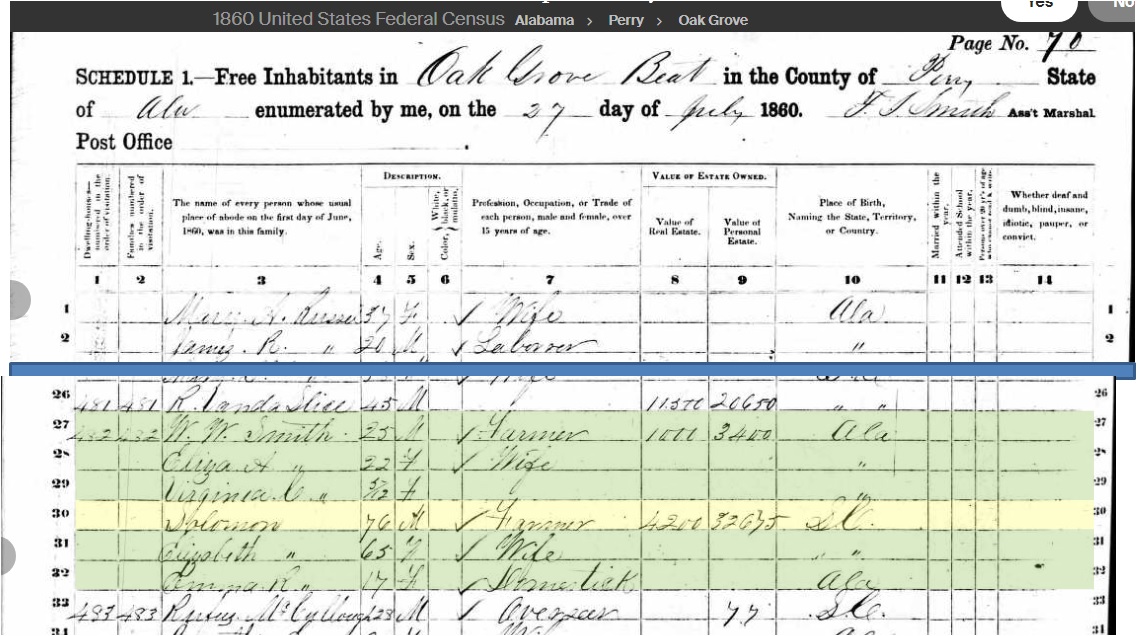 Yes No
1860 United States Federal Census Alabama > Perry > Oak Grove
Page No. 70
SCHEDULE 1.—Free Inhabitants in Oak Grove Beat in the County of Perry State
of Ala enumerated by me, on the 27 day of July 1860. F. S. Smith Ass't Marshal
Post Office .
DESCRIPTION. VALUE OF ESTATE OWNED.
Dwelling-houses— numbered in the order of visitation.
Families numbered in the order of visitation.
The name of every person whose usual place of abode on the first day of June, 1860, was in this family.
Age.
Sex.
Color, White, black, or mulatto.
Profession, Occupation, or Trade of each person, male and female, over 15 years of age.
Value of Real Estate.
Value of Personal Estate.
Place of Birth, Naming the State, Territory, or Country.
Married within the year.
Attended School within the year.
Whether deaf and dumb, blind, insane, idiotic, pauper, or convict.
1 2 3 4 5 6 7 8 9 10 11 12 13 14
1 Mary A. Russel 37 F / Wife Ala 1
2 James R. " 20 M / Laborer " 2
26 481 481 45 M 11500 20650 " " 26
27 482 482 W. W. Smith 25 M / Farmer 1000 3400 Ala 27
28 Eliza A " 22 F / Wife " 28
29 Virginia C " F " 29
30 Solomon 76 M / Farmer 4200 32675 S.C. 30
31 Elizabeth " 65 F / Wife " " 31
32 Emma R " 17 F / Domestick Ala 32
33 483 483 Rufus McCullough 28 M / Overseer S.C. 33
34 34